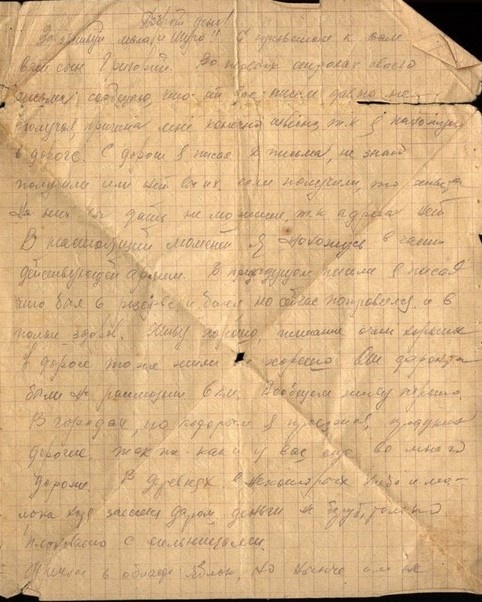 Добрый день!
Здравствуй мама и Шура!! С приветом к вам
ваш сын Григорий. Во первых строках своего
письма сообщаю, что от вас писем давно не
получал причина мне конечно т.к я нахожусь
в дороге. С дороги я писал 2 письма, не знаю
получили или нет вы их, если получили, то ответа
на них вы дать не можете, т.к адреса нет
В настоящий момент я нахожусь в
действующей армии. В предыдущем письме я писал
что был в и болел но сейчас поправился и в
полне здоров. Живу хорошо, питание очень хорошее
в дороге тоже жили не хорошо. Они
были на расстоянии 8 км. Вообщем живу хорошо.
В городах, по которым я проезжал, продукты
дорогие, так же как и у вас еще во много
дороже. В деревнях в некоторых хлеба и мо-
лока даром, деньги не берут, только
с
в яблок, но нынче им не